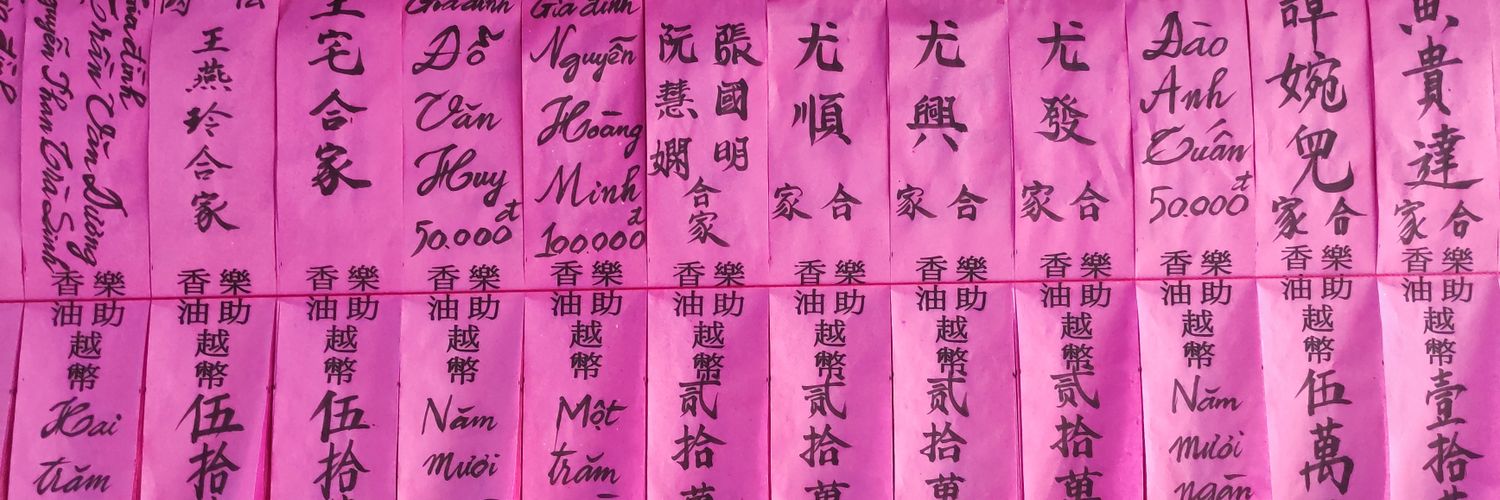 Trần Văn Dương
樂助
香油
越幣
Hai
trăm
王燕玲合家
樂助
香油
越幣
伍拾
王宅合家
樂助
香油
越幣
伍拾
Gia đình
Đỗ
Văn
Huy
50.000đ
樂助
香油
越幣
Năm
mươi
Gia đình
Nguyễn
Hoàng
Minh
100.000đ
樂助
香油
越幣
Một
trăm
張國明
阮慧嫻
合家
樂助
香油
越幣
貳拾萬
尤順
合家
樂助
香油
越幣
貳拾萬
尤興
合家
樂助
香油
越幣
貳拾萬
尤發
合家
樂助
香油
越幣
貳拾萬
Đào
Anh
Tuấn
50.000đ
樂助
香油
越幣
Năm
mươi
ngàn
婉兒
合家
樂助
香油
越幣
伍萬
貴達
合家
樂助
香油
越幣
壹拾